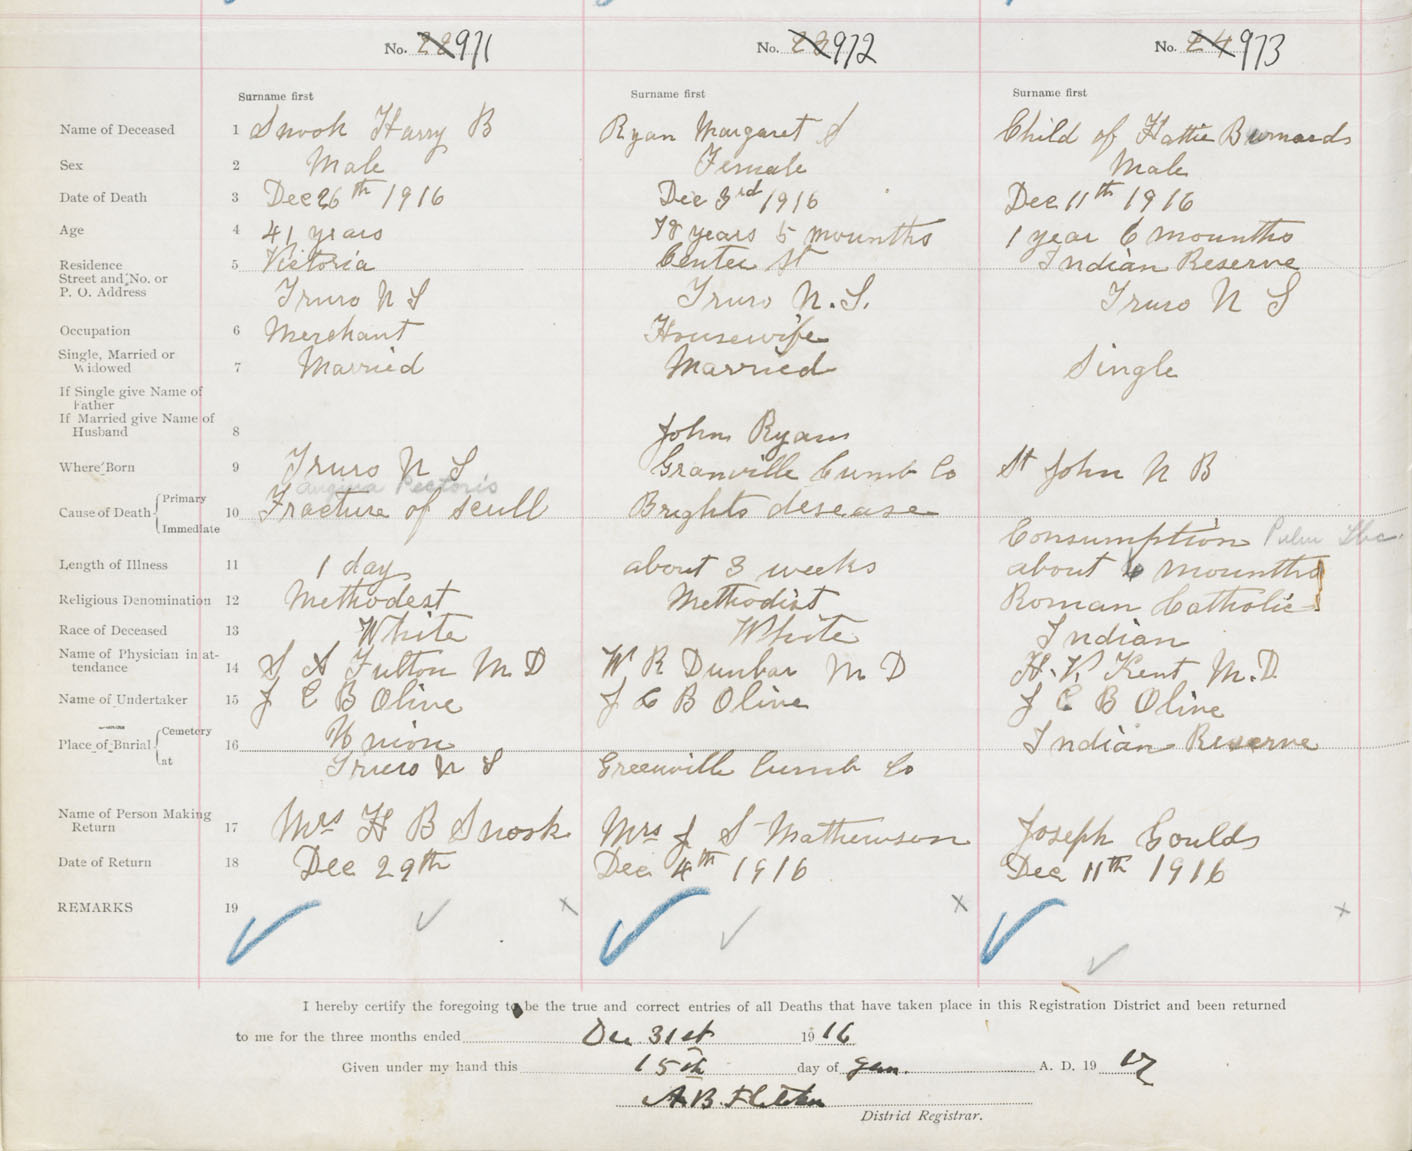 No. 22 971 No. 23 972 No. 24 973
Surname first Surname first Surname first
Name of Deceased 1 Snook Harry B Ryan Margaret S Child of Hattie Bernards
Sex 2 Male Female Male
Date of Death 3 Dec 26th 1916 Dec 3rd 1916 Dec 11th 1916
Age 4 41 years 78 years 5 mounths 1 year 6 mounths
Residence 5 Victoria Center St Indian Reserve
Street and No. or
P. O. Address Truro N S Truro N.S. Truro N S
Occupation 6 Merchant Housewife
Single, Married or
Widowed 7 Married Married Single
If Single give Name of
Father
If Married give Name of
Husband 8 John Ryan
Where Born 9 Truro N S Granville Cumb Co St John N B
Angina Pectoris
Cause of Death Primary 10 Fracture of scull Brights desease
Immediate Consumption Pulm
Length of Illness 11 1 day about 3 weeks about 6 mounths
Religious Denomination 12 Methodest Methodist Roman Catholic
Race of Deceased 13 White White Indian
Name of Physician in at-
tendance 14 S A Fulton M D W R Dunbar M D H. V. Kent M.D
Name of Undertaker 15 J C B Olive J C B Olive J C B Olive
Place of Burial Cemetery 16 Union Indian Reserve
at Truro N S Greenville Cumb Co
Name of Person Making
Return 17 Mrs H B Snook Mrs J S Mathewson Joseph Goulds
Date of Return 18 Dec 29th Dec 4th 1916 Dec 11th 1916
REMARKS 19
I hereby certify the foregoing to be the true and correct entries of all Deaths that have taken place in this Registration District and been returned
to me for the three months ended Dec 31st 1916
Given under my hand this 15th day of Jan. A. D. 1917
A.B. Fletcher
District Registrar.